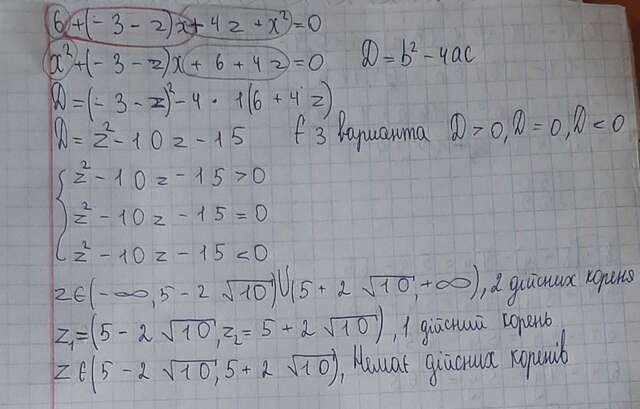 6+(-3-z)x+4z+x²=0
x²+(-3-z)x+6+4z=0 D=b²-4ac
D=(-3-z)²-4·1(6+4z)
D=z²-10z-15 3 варианта D>0, D=0, D<0
z²-10z-15>0
z²-10z-15=0
z²-10z-15<0
z∈(-∞, 5-2√10)∪(5+2√10, +∞), 2 дійсних кореня
z₁=(5-2√10, z₂=5+2√10), 1 дійсний корень
z∈(5-2√10, 5+2√10), Немає дійсних коренів